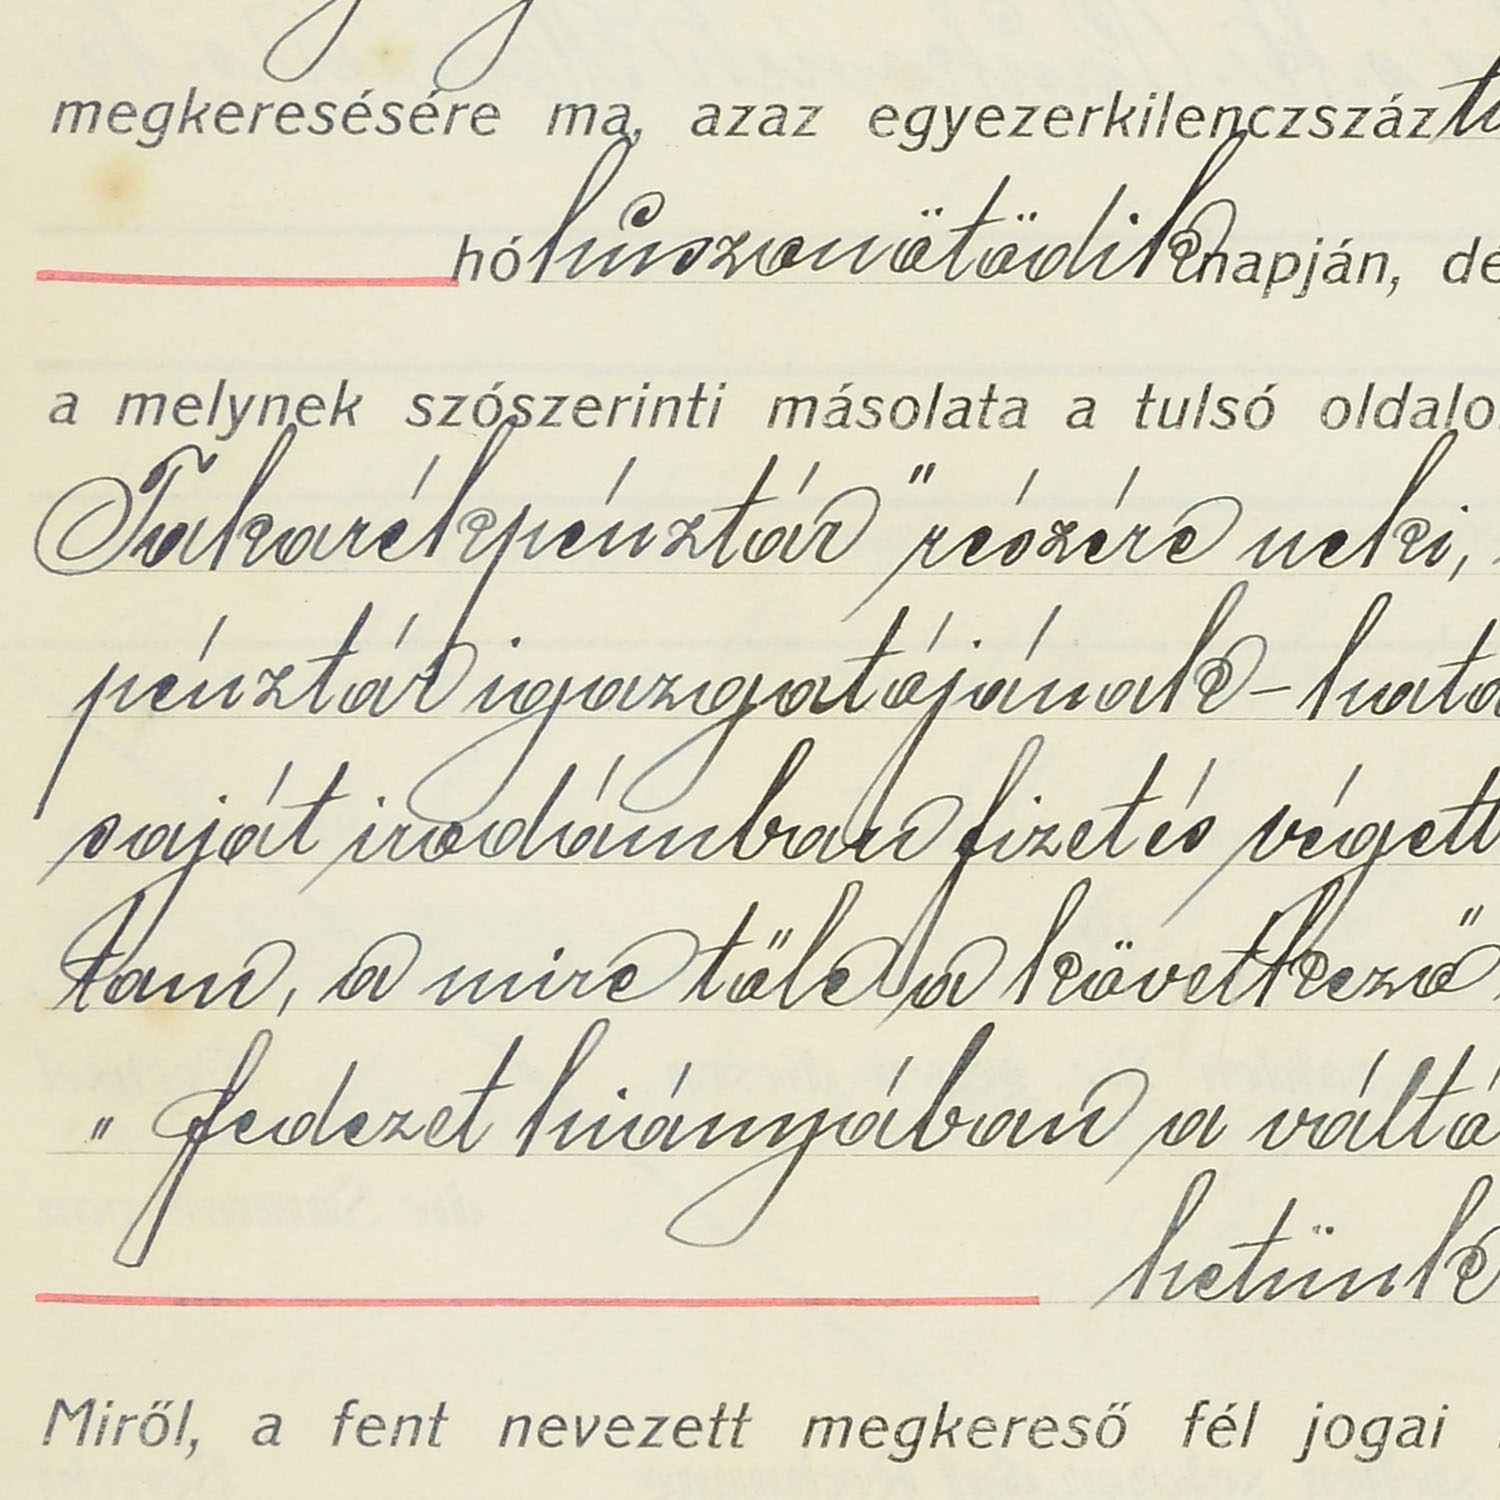 megkeresésére ma, azaz egyezerkilenczszáz
hó huszonötödik napján, de
a melynek szószerinti másolata a tulsó oldalo
Takarékpénztár" részére neki,
pénztár igazgatójának - hata
saját irodámban fizetés végett
tam, a mire tőle a következő
„fedezet hiányában a váltó
hetünk
Miről, a fent nevezett megkereső fél jogai